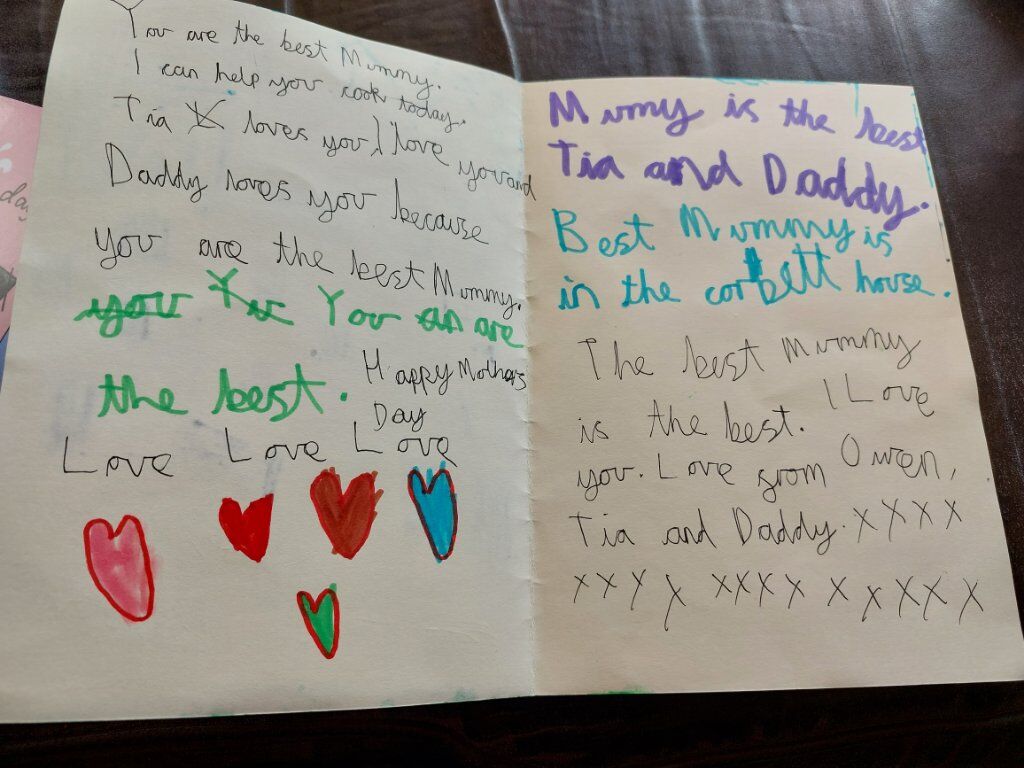 You are the best Mummy.
I can help you cook today.
Tia loves you I love you and
Daddy loves you because
you are the best Mummy.
you Yu You an are
the best. Happy Mothers
Day
Love Love Love
Mumy is the best
Tia and Daddy.
Best Mummy is
in the corbett house.
The best Mummy
is the best. I Love
you. Love from Owen,
Tia and Daddy. x x x x
x x x x x x x x x x x x x
day